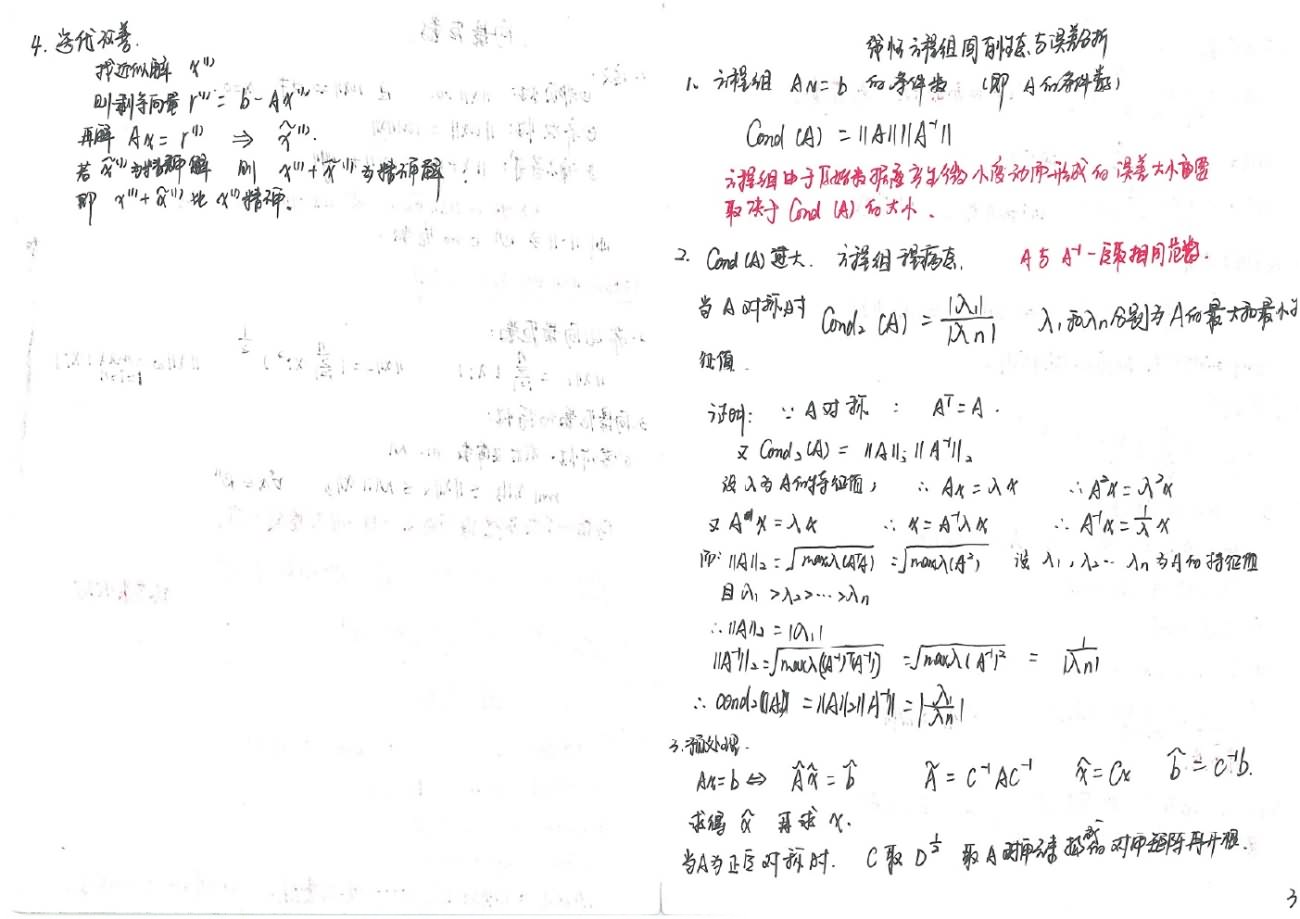 4. 迭代改善.
找近似解 x⁽¹⁾
则剩余向量 r⁽¹⁾ = b - Ax⁽¹⁾
再解 Ax = r⁽¹⁾ ⇒ x̂⁽¹⁾.
若 x̂⁽¹⁾为精确解 则 x⁽¹⁾ + x̂⁽¹⁾ 为精确解.
即 x⁽¹⁾ + x̂⁽¹⁾ 比 x⁽¹⁾精确.
方程组 与误差分析
1. 方程组 Ax = b 的条件数 (即 A的条件数)
Cond (A) = ||A|| ||A⁻¹||
方程组由于原始数据产生微小变动而形成的误差大小
取决于 Cond (A) 的大小.
2. Cond (A) 过大. 方程组 病态. A 与 A⁻¹ 一定取相同范数.
当 A 对称时 Cond₂ (A) = |λ₁| / |λn| λ₁和λn分别为A的最大和最小特
征值.
证明: ∵ A 对称 : Aᵀ = A.
又 Cond₂(A) = ||A||₂ ||A⁻¹||₂
设 λ 为 A的特征值, ∴ Ax = λx ∴ A²x = λ²x
又 Ax = λx ∴ x = A⁻¹λx ∴ A⁻¹x = 1/λ x
而: ||A||₂ = √(maxλ(AᵀA)) = √(maxλ(A²)) 设 λ₁, λ₂… λn 为 A的特征值
且 λ₁ > λ₂ > … > λn
∴ ||A||₂ = |λ₁|
||A⁻¹||₂ = √(maxλ((A⁻¹)ᵀ(A⁻¹))) = √(maxλ(A⁻¹)²) = 1/|λn|
∴ cond₂(A) = ||A||₂ ||A⁻¹|| = |λ₁/λn|
3. 预处理.
Ax = b ⇔ Âx̂ = b̂ Ã = C⁻¹AC⁻¹ x̂ = Cx b̂ = C⁻¹b.
求得 x̂ 再求 x.
当A为正定对称时. C取 D^½ 取 A 对角元素 对角矩阵再开根.
3